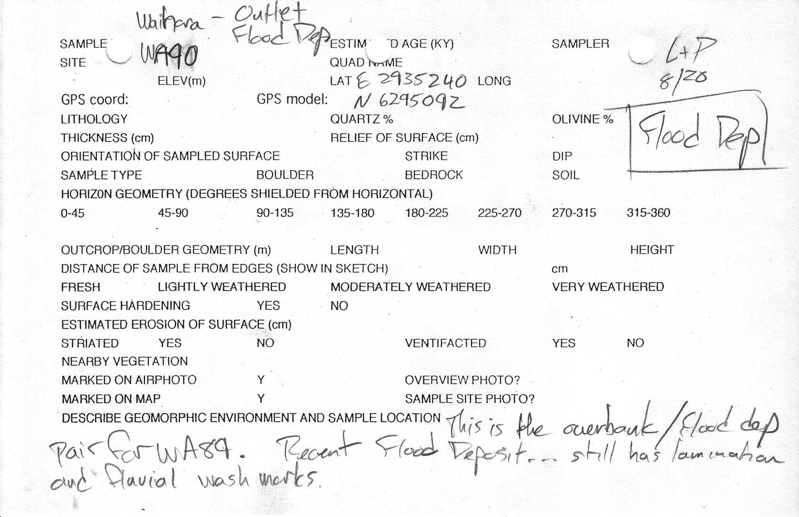 Waihora - Outlet
Flood Dep
SAMPLE WA90 ESTIM D AGE (KY) SAMPLER L+P
SITE QUAD NAME 8/20
ELEV(m) LAT E 2935240 LONG
GPS coord: GPS model: N 6295092
LITHOLOGY QUARTZ % OLIVINE %
Flood Dep
THICKNESS (cm) RELIEF OF SURFACE (cm)
ORIENTATION OF SAMPLED SURFACE STRIKE DIP
SAMPLE TYPE BOULDER BEDROCK SOIL
HORIZON GEOMETRY (DEGREES SHIELDED FROM HORIZONTAL)
0-45 45-90 90-135 135-180 180-225 225-270 270-315 315-360
OUTCROP/BOULDER GEOMETRY (m) LENGTH WIDTH HEIGHT
DISTANCE OF SAMPLE FROM EDGES (SHOW IN SKETCH) cm
FRESH LIGHTLY WEATHERED MODERATELY WEATHERED VERY WEATHERED
SURFACE HARDENING YES NO
ESTIMATED EROSION OF SURFACE (cm)
STRIATED YES NO VENTIFACTED YES NO
NEARBY VEGETATION
MARKED ON AIRPHOTO Y OVERVIEW PHOTO?
MARKED ON MAP Y SAMPLE SITE PHOTO?
DESCRIBE GEOMORPHIC ENVIRONMENT AND SAMPLE LOCATION This is the overbank/flood dep
pair for WA89. Recent Flood Deposit... still has lamination
and fluvial wash marks.